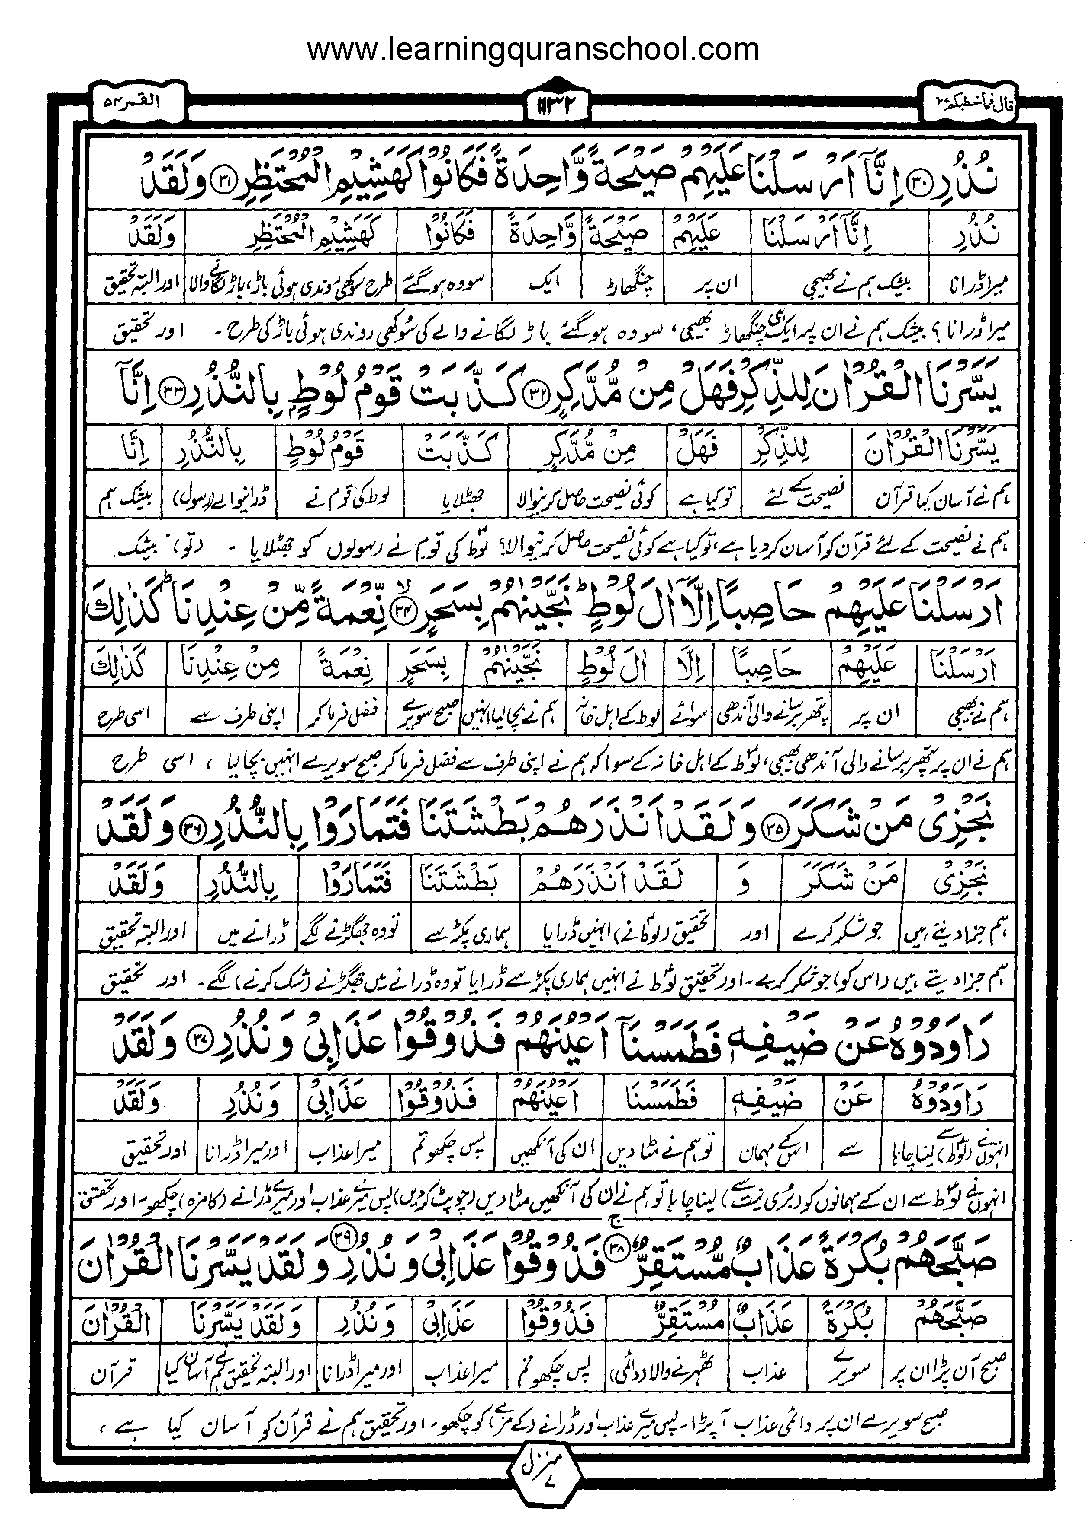 www.learningquranschool.com
القمر ۵۴
۱۱۳۲
قال فما خطبکم ۲۷
نُذُرِ ۝۳۰ اِنَّاۤ اَرْسَلْنَا عَلَیْهِمْ صَیْحَةً وَّاحِدَةً فَكَانُوْا كَهَشِیْمِ الْمُحْتَظِرِ ۝۳۱ وَلَقَدْ
نُذُرِ اِنَّاۤ اَرْسَلْنَا عَلَیْهِمْ صَیْحَةً وَّاحِدَةً فَكَانُوْا كَهَشِیْمِ الْمُحْتَظِرِ وَلَقَدْ
میرا ڈرانا بیشک ہم نے بھیجی ان پر چنگھاڑ ایک سو وہ ہوگئے طرح سوکھی روندی ہوئی باڑ، باڑ لگانے والا اور البتہ تحقیق
میرا ڈرانا؟ بیشک ہم نے ان پر ایک ہی چنگھاڑ بھیجی، سو وہ ہوگئے باڑ لگانے والے کی سوکھی روندی ہوئی باڑ کی طرح۔ اور تحقیق
یَسَّرْنَا الْقُرْاٰنَ لِلذِّكْرِ فَهَلْ مِنْ مُّدَّكِرٍ ۝۳۲ كَذَّبَتْ قَوْمُ لُوْطٍۭ بِالنُّذُرِ ۝۳۳ اِنَّاۤ
یَسَّرْنَا الْقُرْاٰنَ لِلذِّكْرِ فَهَلْ مِنْ مُّدَّكِرٍ كَذَّبَتْ قَوْمُ لُوْطٍ بِالنُّذُرِ اِنَّا
ہم نے آسان کیا قرآن نصیحت کے لئے تو کیا ہے کوئی نصیحت حاصل کرنیوالا جھٹلایا لوط کی قوم نے ڈرانیوالے (رسول) بیشک ہم
ہم نے نصیحت کے لئے قرآن کو آسان کر دیا ہے، تو کیا ہے کوئی نصیحت حاصل کرنیوالا؟ لوط کی قوم نے رسولوں کو جھٹلایا۔ (تو) بیشک
اَرْسَلْنَا عَلَیْهِمْ حَاصِبًا اِلَّاۤ اٰلَ لُوْطٍ ؕ نَجَّیْنٰهُمْ بِسَحَرٍ ۝۳۴ۙ نِّعْمَةً مِّنْ عِنْدِنَا ؕ كَذٰلِكَ
اَرْسَلْنَا عَلَیْهِمْ حَاصِبًا اِلَّا اٰلَ لُوْطٍ نَجَّیْنٰهُمْ بِسَحَرٍ نِعْمَةً مِنْ عِنْدِنَا كَذٰلِكَ
ہم نے بھیجی ان پر پتھر برسانے والی آندھی سوائے لوط کے اہل خانہ ہم نے بچا لیا انہیں صبح سویرے فضل فرما کر اپنی طرف سے اسی طرح
ہم نے ان پر پتھر برسانے والی آندھی بھیجی، لوط کے اہل خانہ کے سوا کہ ہم نے اپنی طرف سے فضل فرما کر صبح سویرے انہیں بچا لیا، اسی طرح
نَجْزِیْ مَنْ شَكَرَ ۝۳۵ وَلَقَدْ اَنْذَرَهُمْ بَطْشَتَنَا فَتَمَارَوْا بِالنُّذُرِ ۝۳۶ وَلَقَدْ
نَجْزِیْ مَنْ شَكَرَ وَ لَقَدْ اَنْذَرَهُمْ بَطْشَتَنَا فَتَمَارَوْا بِالنُّذُرِ وَلَقَدْ
ہم جزا دیتے ہیں جو شکر کرے اور تحقیق (لوط نے) انہیں ڈرایا ہماری پکڑ سے تو وہ جھگڑنے لگے ڈرانے میں اور البتہ تحقیق
ہم جزا دیتے ہیں (اس کو) جو شکر کرے۔ اور تحقیق لوط نے انہیں ہماری پکڑ سے ڈرایا تو وہ ڈرانے میں جھگڑنے (شک کرنے) لگے۔ اور تحقیق
رَاوَدُوْهُ عَنْ ضَیْفِهٖ فَطَمَسْنَاۤ اَعْیُنَهُمْ فَذُوْقُوْا عَذَابِیْ وَنُذُرِ ۝۳۷ وَلَقَدْ
رَاوَدُوْهُ عَنْ ضَیْفِهٖ فَطَمَسْنَا اَعْیُنَهُمْ فَذُوْقُوْا عَذَابِیْ وَنُذُرِ وَلَقَدْ
انہوں نے (لوط سے) لینا چاہا سے اس کے مہمان تو ہم نے مٹا دیں ان کی آنکھیں پس چکھو تم میرا عذاب اور میرا ڈرانا اور تحقیق
انہوں نے لوط سے ان کے مہمانوں کو (بری نیت سے) لینا چاہا تو ہم نے ان کی آنکھیں مٹا دیں (چوپٹ کر دیں) پس میرے عذاب اور میرے ڈرانے (کا مزہ) چکھو۔ اور تحقیق
صَبَّحَهُمْ بُكْرَةً عَذَابٌ مُّسْتَقِرٌّ ۝۳۸ۚ فَذُوْقُوْا عَذَابِیْ وَنُذُرِ ۝۳۹ وَلَقَدْ یَسَّرْنَا الْقُرْاٰنَ
صَبَّحَهُمْ بُكْرَةً عَذَابٌ مُسْتَقِرٌّ فَذُوْقُوْا عَذَابِیْ وَنُذُرِ وَلَقَدْ یَسَّرْنَا الْقُرْاٰنَ
صبح آن پڑا ان پر سویرے عذاب ٹھہرنے والا (دائمی) پس چکھو تم میرا عذاب اور میرا ڈرانا اور البتہ تحقیق ہم نے آسان کیا قرآن
صبح سویرے ان پر دائمی عذاب آپڑا۔ پس میرے عذاب اور ڈرانے (کے مزے) کو چکھو، اور تحقیق ہم نے قرآن کو آسان کیا ہے،
منزل ۷